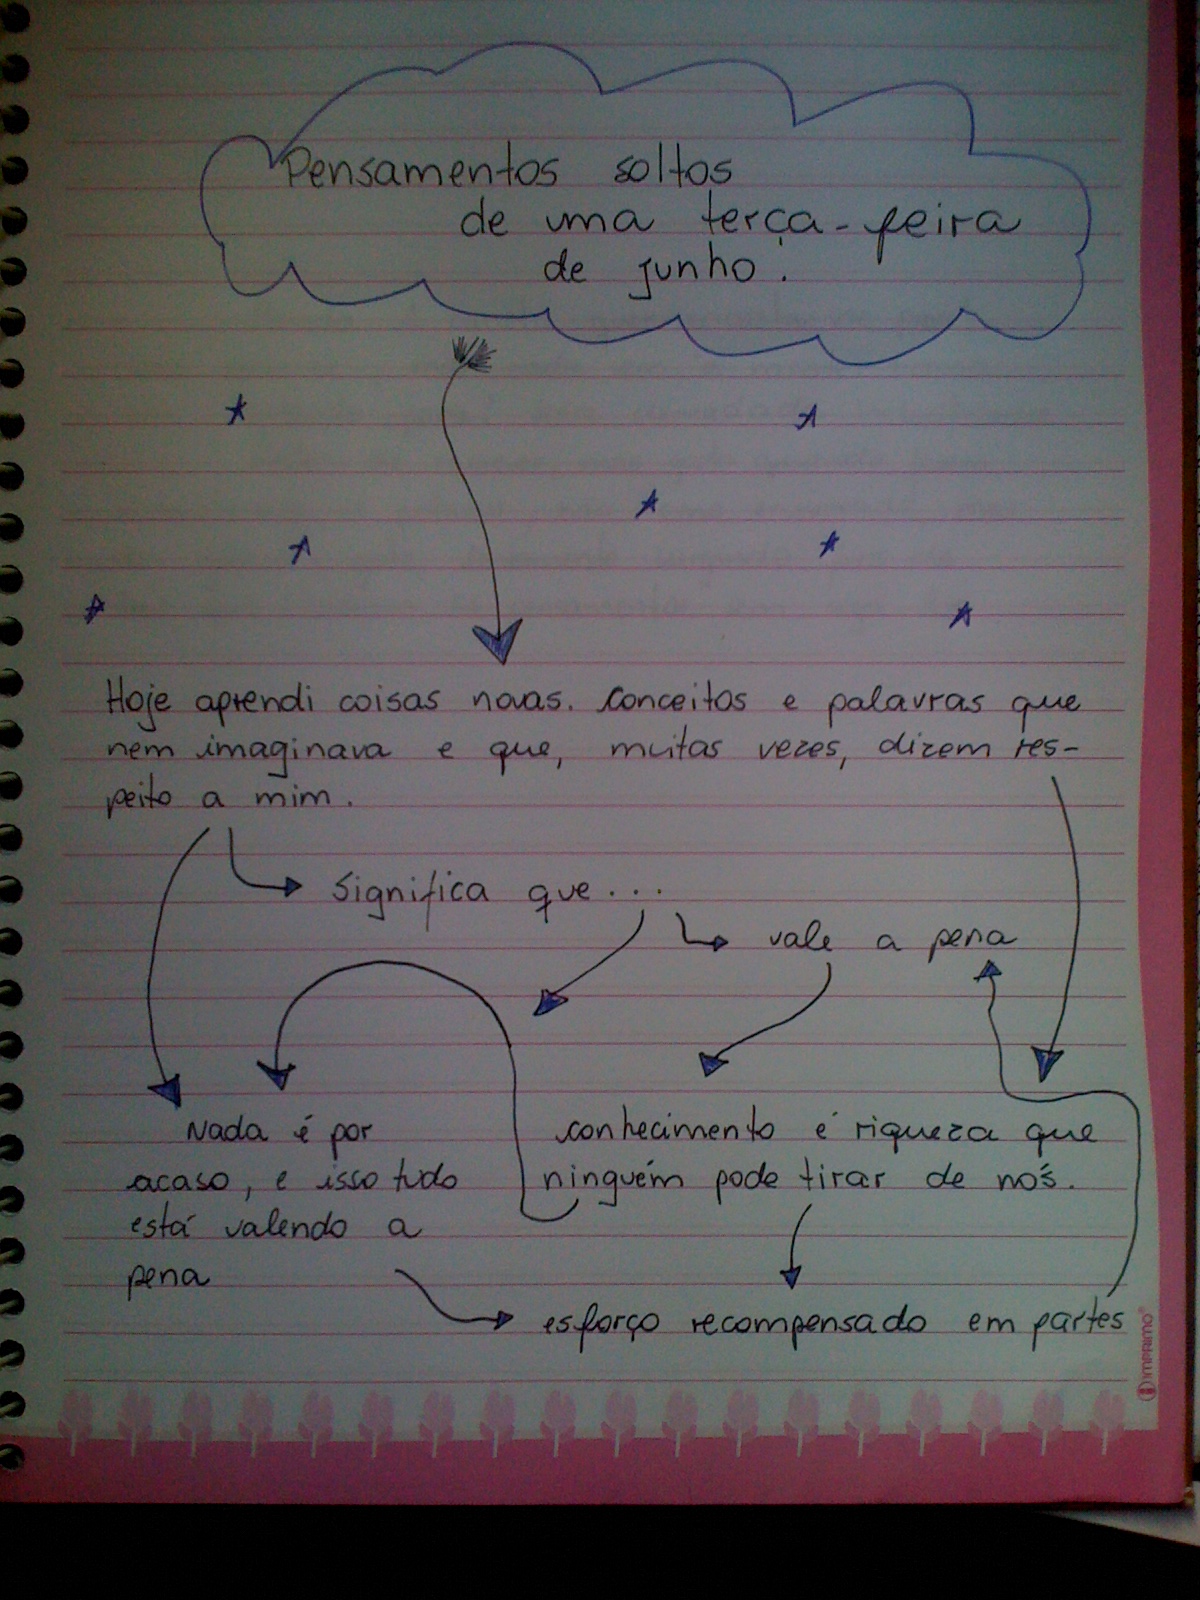 Pensamentos soltos
de uma terça-feira
de junho.
Hoje aprendi coisas novas. Conceitos e palavras que
nem imaginava e que, muitas vezes, dizem res-
peito a mim.
Significa que...
vale a pena
Nada é por
acaso, e isso tudo
está valendo a
pena
conhecimento é riqueza que
ninguém pode tirar de nós.
esforço recompensado em partes
IMPRIMO